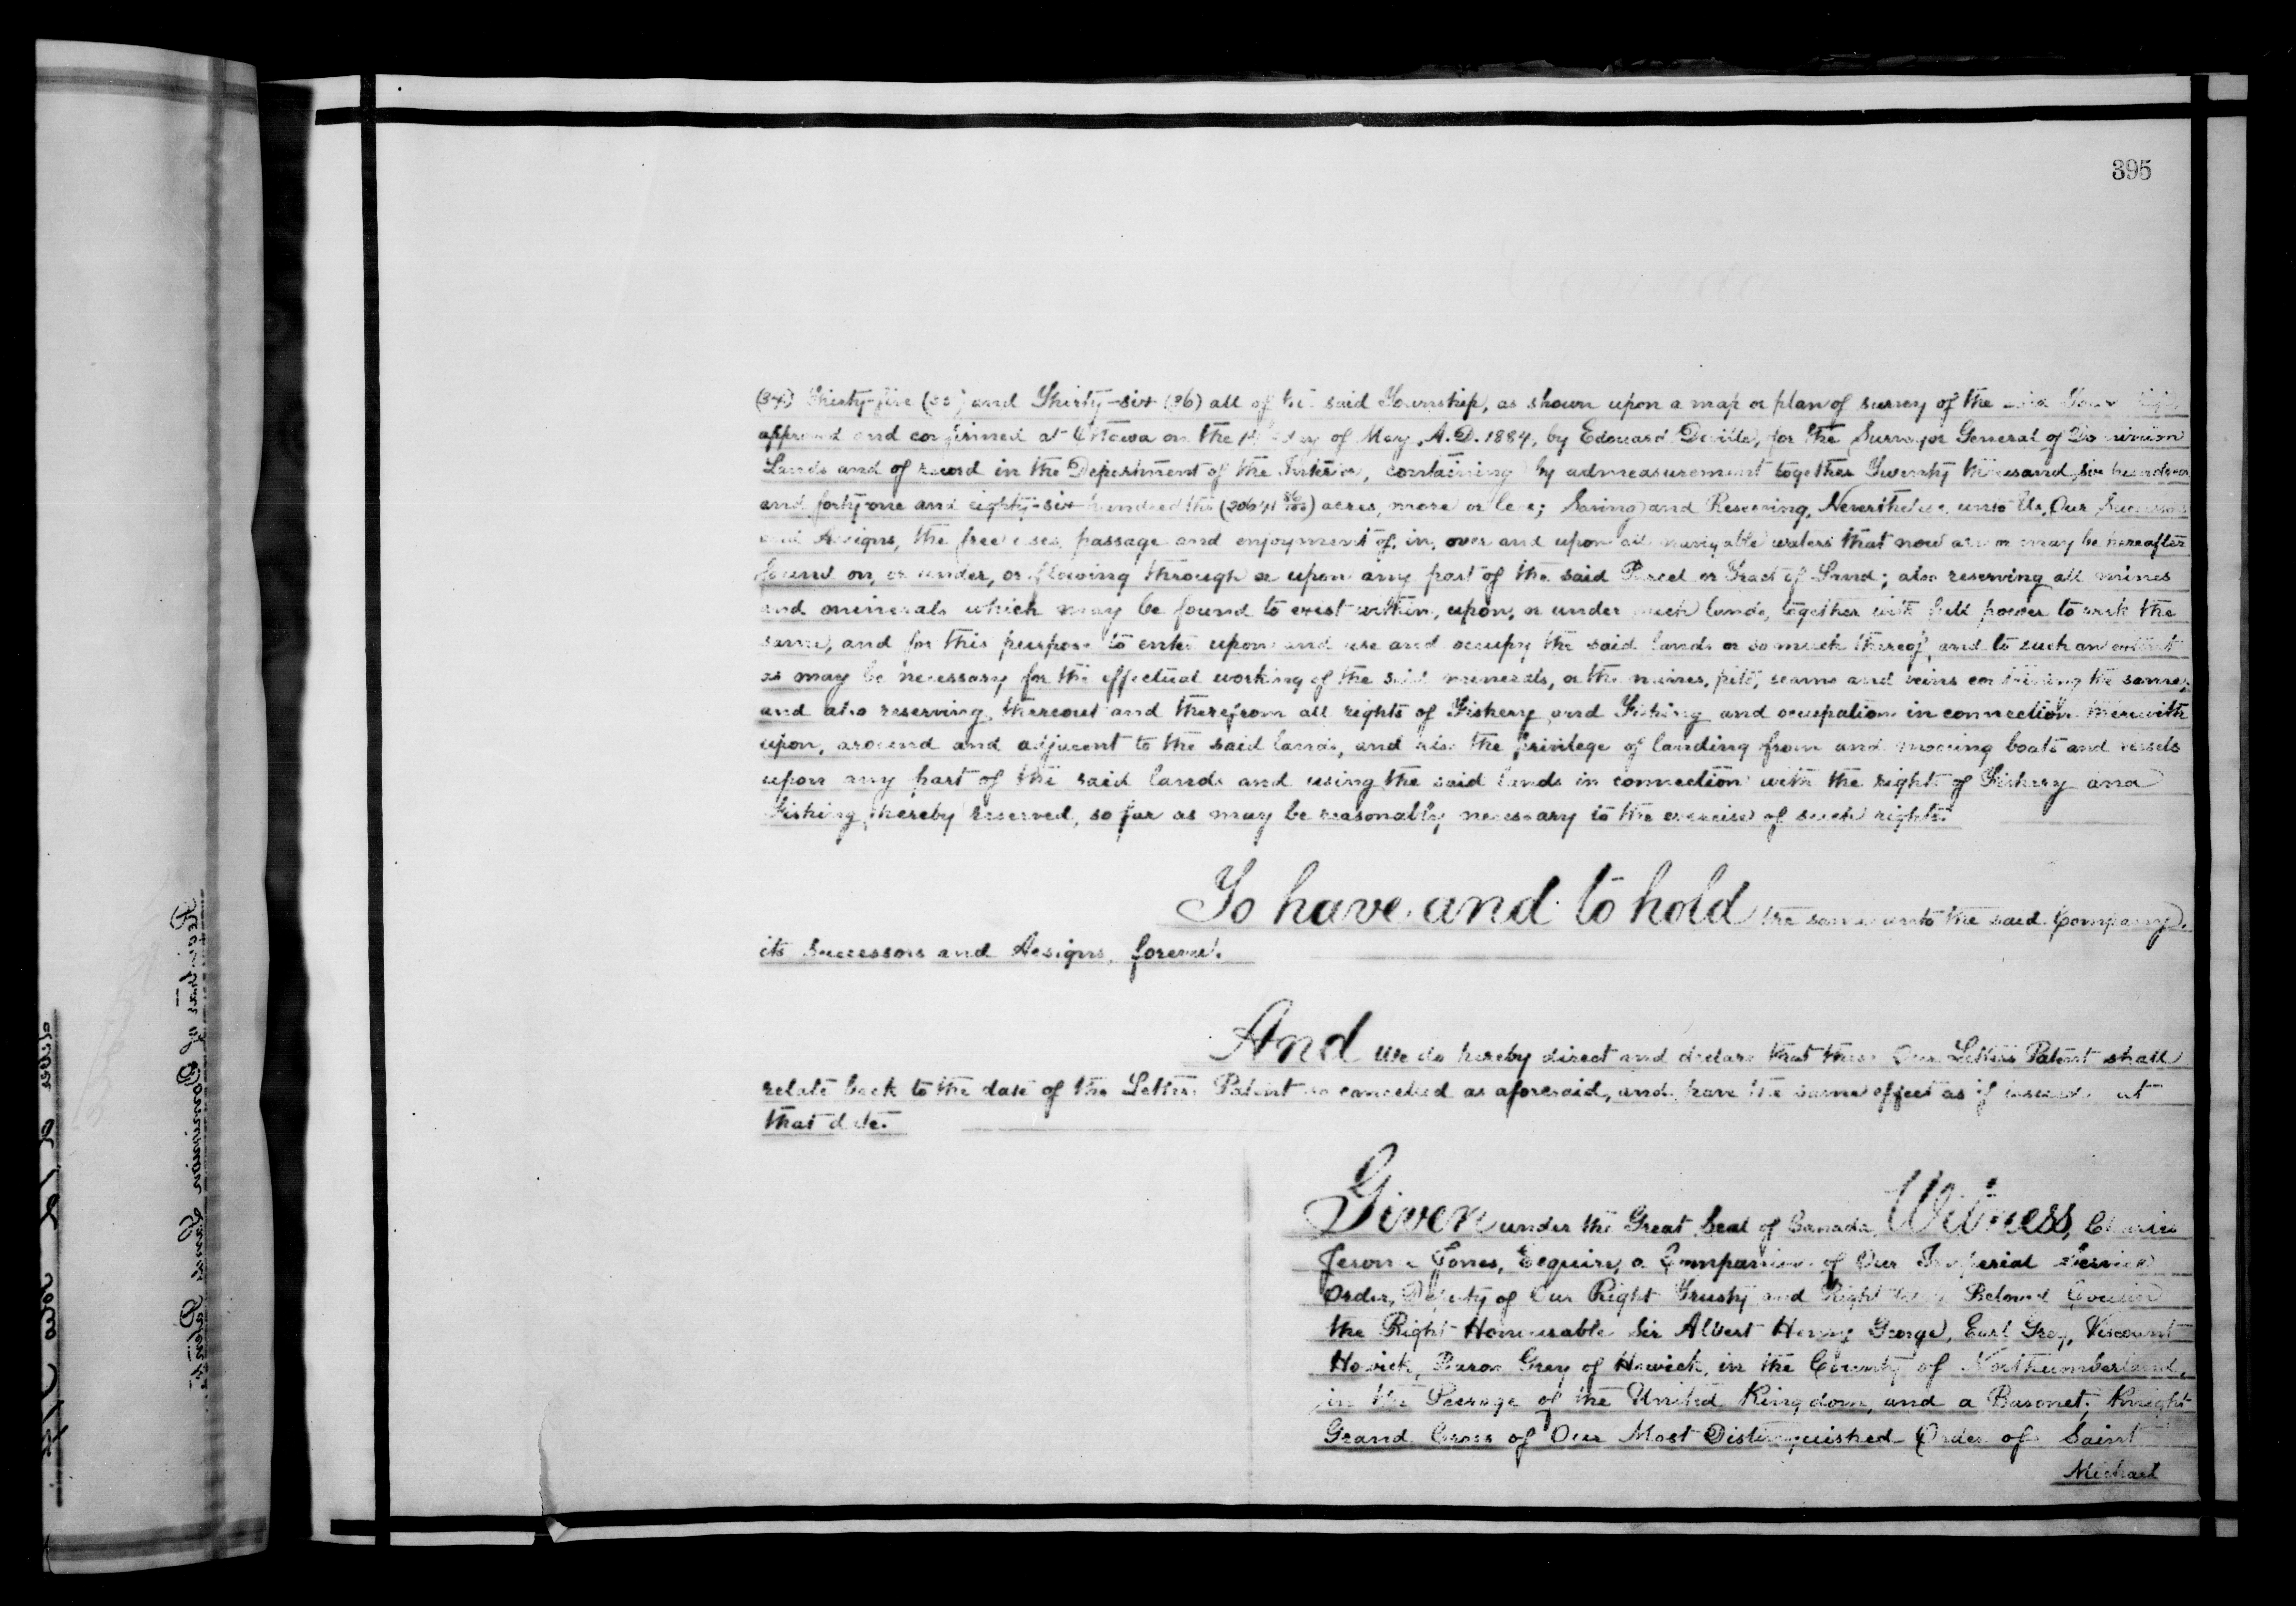 395
(34) Thirty-five (35) and Thirty-six (36) all of the said Township, as shown upon a map or plan of survey of the said Township
approved and confirmed at Ottawa on the day of May, A.D. 1884, by Edouard Deville, for the Surveyor General of Dominion
Lands and of record in the Department of the Interior, containing by admeasurement together Twenty thousand, six hundred
and forty-one and eighty-six hundredths (20641 86/100) acres, more or less; Saving and Reserving, Nevertheless, unto Us, Our Successors
and Assigns, the free uses, passage and enjoyment of, in, over and upon all navigable waters that now are or may be hereafter
found on, or under, or flowing through or upon any part of the said Parcel or Tract of Land; also reserving all mines
and minerals which may be found to exist within, upon, or under such lands, together with full power to work the
same, and for this purpose to enter upon and use and occupy the said lands or so much thereof and to such an extent
as may be necessary for the effectual working of the said minerals, or the mines, pits, seams and veins containing the same;
and also reserving thereout and therefrom all rights of Fishery and Fishing and occupation in connection therewith
upon, around and adjacent to the said lands, and also the privilege of landing from and mooring boats and vessels
upon any part of the said lands and using the said lands in connection with the right of Fishery and
Fishing hereby reserved, so far as may be reasonably necessary to the exercise of such rights.
To have and to hold the same unto the said Company,
its Successors and Assigns, forever.
And We do hereby direct and declare that these Our Letters Patent shall
relate back to the date of the Letters Patent so cancelled as aforesaid, and have the same effect as if issued at
that date.
Given under the Great Seal of Canada, Witness, Charles
Jerome Jones, Esquire, a Companion of Our Imperial Service
Order, Deputy of Our Right Trusty and Right Beloved Cousin
the Right Honourable Sir Albert Henry George, Earl Grey, Viscount
Howick, Baron Grey of Howick, in the County of Northumberland,
in the Peerage of the United Kingdom, and a Baronet; Knight
Grand Cross of Our Most Distinguished Order of Saint
Michael
Registrar of Dominion Lands Patents.